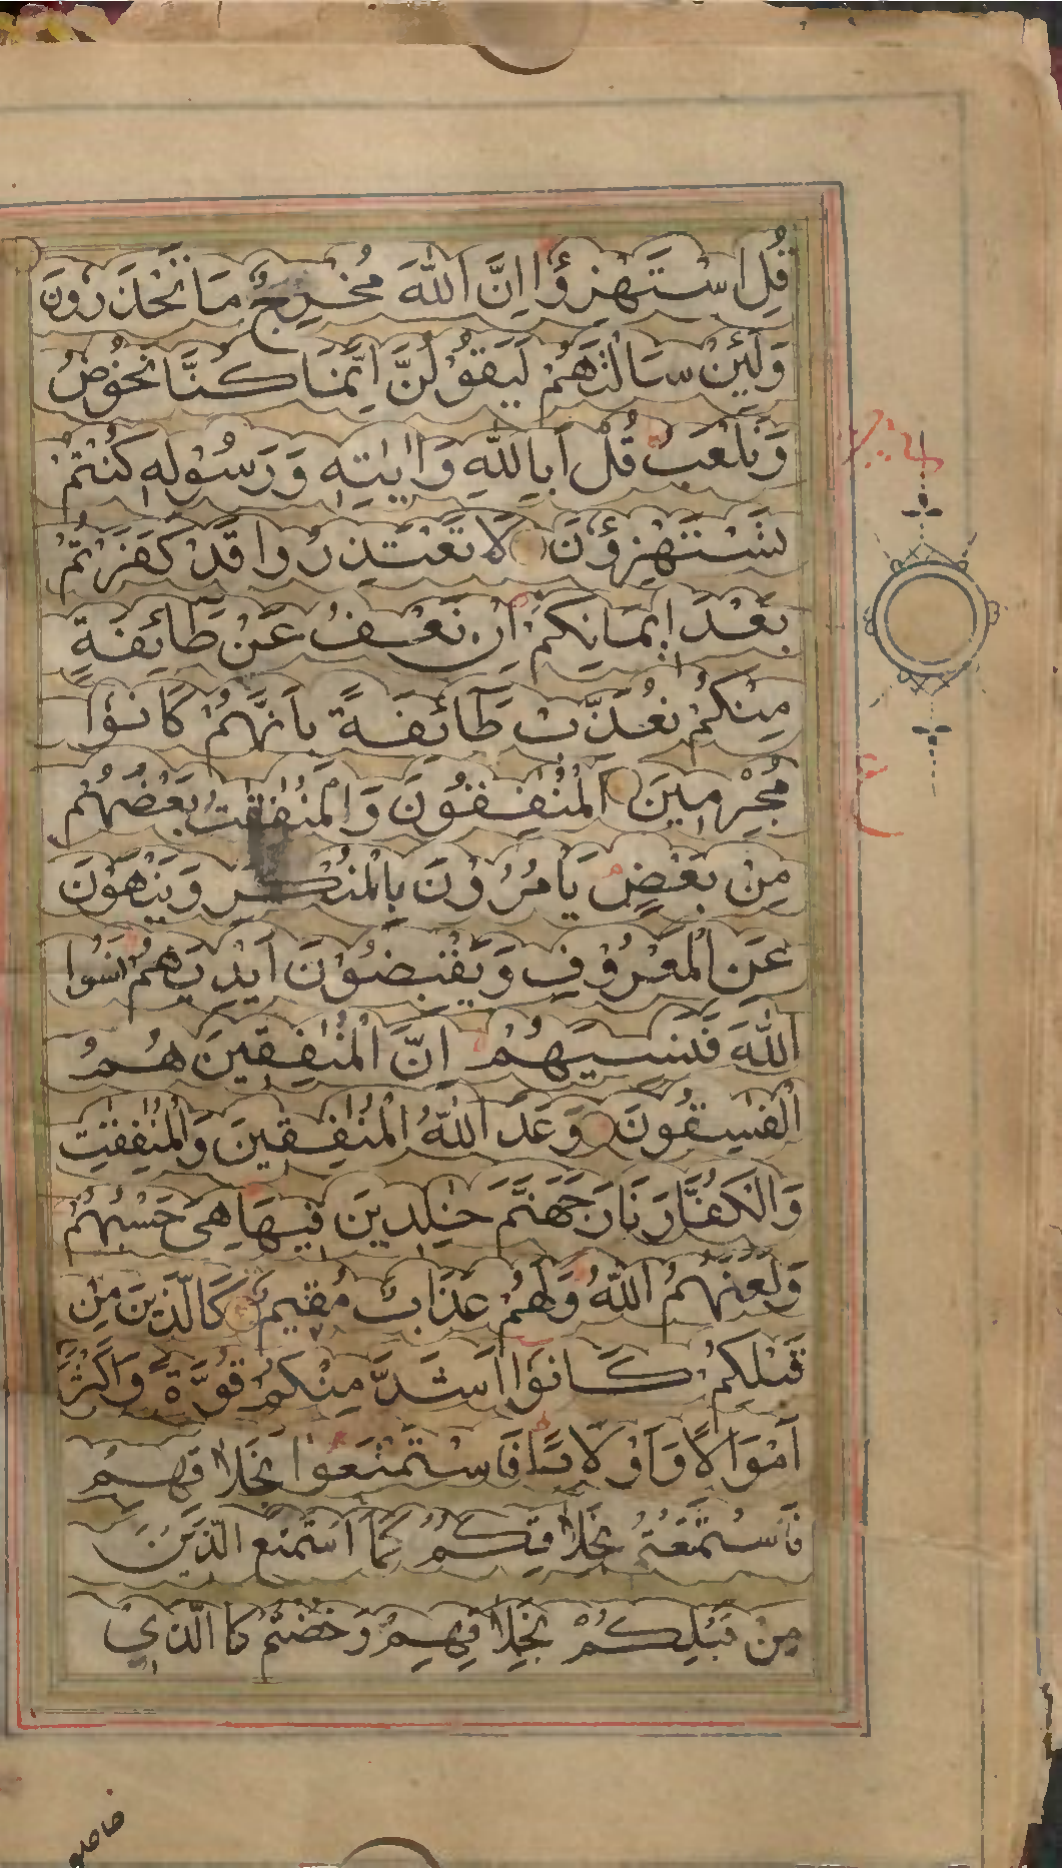 قُلِ اسْتَهْزِؤُا اِنَّ اللّٰهَ مُخْرِجٌ مَا تَحْذَرُوْنَ
وَلَئِنْ سَاَلْتَهُمْ لَيَقُوْلُنَّ اِنَّمَا كُنَّا نَخُوْضُ
وَنَلْعَبُ قُلْ اَبِاللّٰهِ وَاٰيٰتِهٖ وَرَسُوْلِهٖ كُنْتُمْ
تَسْتَهْزِؤُنَ لَا تَعْتَذِرُوا قَدْ كَفَرْتُمْ
بَعْدَ اِيْمَانِكُمْ اِنْ نَعْفُ عَنْ طَائِفَةٍ
مِنْكُمْ نُعَذِّبْ طَائِفَةً بِاَنَّهُمْ كَانُوْا
مُجْرِمِيْنَ اَلْمُنٰفِقُوْنَ وَالْمُنٰفِقٰتُ بَعْضُهُمْ
مِنْ بَعْضٍ يَاْمُرُوْنَ بِالْمُنْكَرِ وَيَنْهَوْنَ
عَنِ الْمَعْرُوْفِ وَيَقْبِضُوْنَ اَيْدِيَهُمْ نَسُوا
اللّٰهَ فَنَسِيَهُمْ اِنَّ الْمُنٰفِقِيْنَ هُمُ
الْفٰسِقُوْنَ وَعَدَ اللّٰهُ الْمُنٰفِقِيْنَ وَالْمُنٰفِقٰتِ
وَالْكُفَّارَ نَارَ جَهَنَّمَ خٰلِدِيْنَ فِيْهَا هِيَ حَسْبُهُمْ
وَلَعَنَهُمُ اللّٰهُ وَلَهُمْ عَذَابٌ مُقِيْمٌ كَالَّذِيْنَ مِنْ
قَبْلِكُمْ كَانُوْا اَشَدَّ مِنْكُمْ قُوَّةً وَاَكْثَرَ
اَمْوَالًا وَاَوْلَادًا فَاسْتَمْتَعُوْا بِخَلَاقِهِمْ
فَاسْتَمْتَعْتُمْ بِخَلَاقِكُمْ كَمَا اسْتَمْتَعَ الَّذِيْنَ
مِنْ قَبْلِكُمْ بِخَلَاقِهِمْ وَخُضْتُمْ كَالَّذِيْ
خاضوا